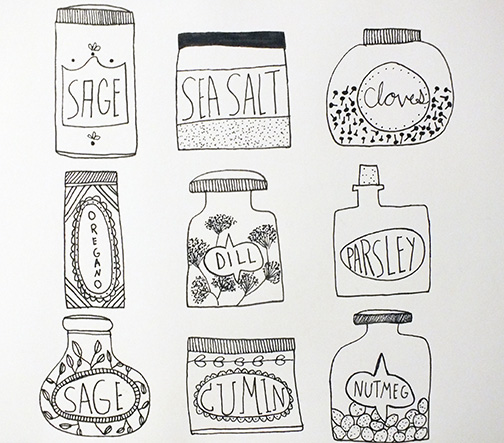 SAGE
SEA SALT
Cloves
OREGANO
DILL
PARSLEY
SAGE
CUMIN
NUTMEG